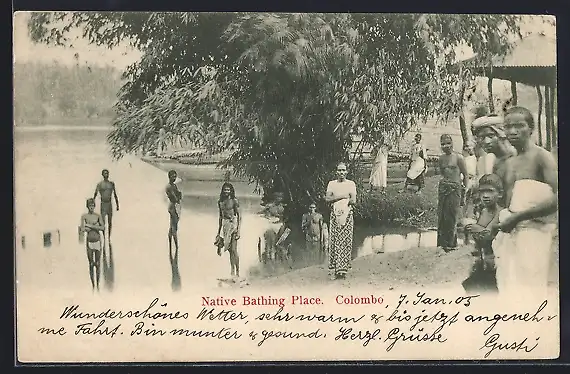 Native Bathing Place. Colombo. 7. Jan. 05
Wunderschönes Wetter, sehr warm & bis jetzt angeneh-
me Fahrt. Bin munter & gesund. Herzl. Grüsse
Gusti